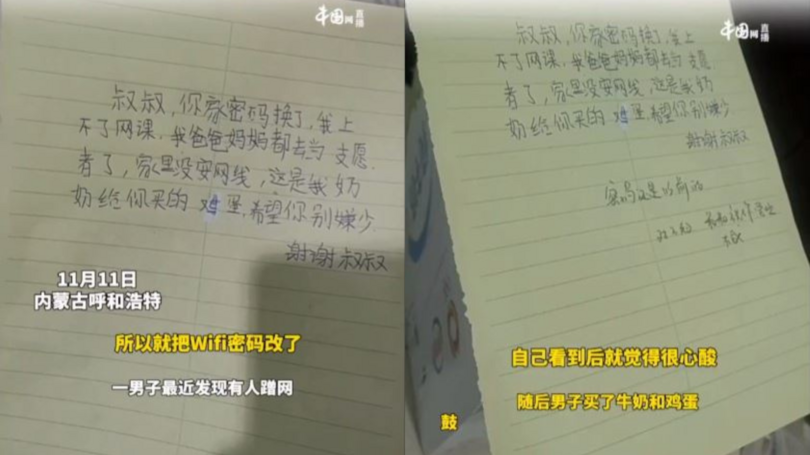 中国网直播
叔叔,你家密码换了,我上
不了网课,我爸爸妈妈都去当 支愿
者了,家里没安网线,这是我奶
奶给你买的 鸡蛋,希望你别嫌少
谢谢叔叔
11月11日
内蒙古呼和浩特
所以就把Wifi密码改了
一男子最近发现有人蹭网
中国网直播
叔叔,你家密码换了,我上
不了网课,我爸爸妈妈都去当 支愿
者了,家里没安网线,这是我奶
奶给你买的 鸡蛋,希望你别嫌少
谢谢叔叔
密码还是以前的
自己看到后就觉得很心酸
随后男子买了牛奶和鸡蛋
鼓